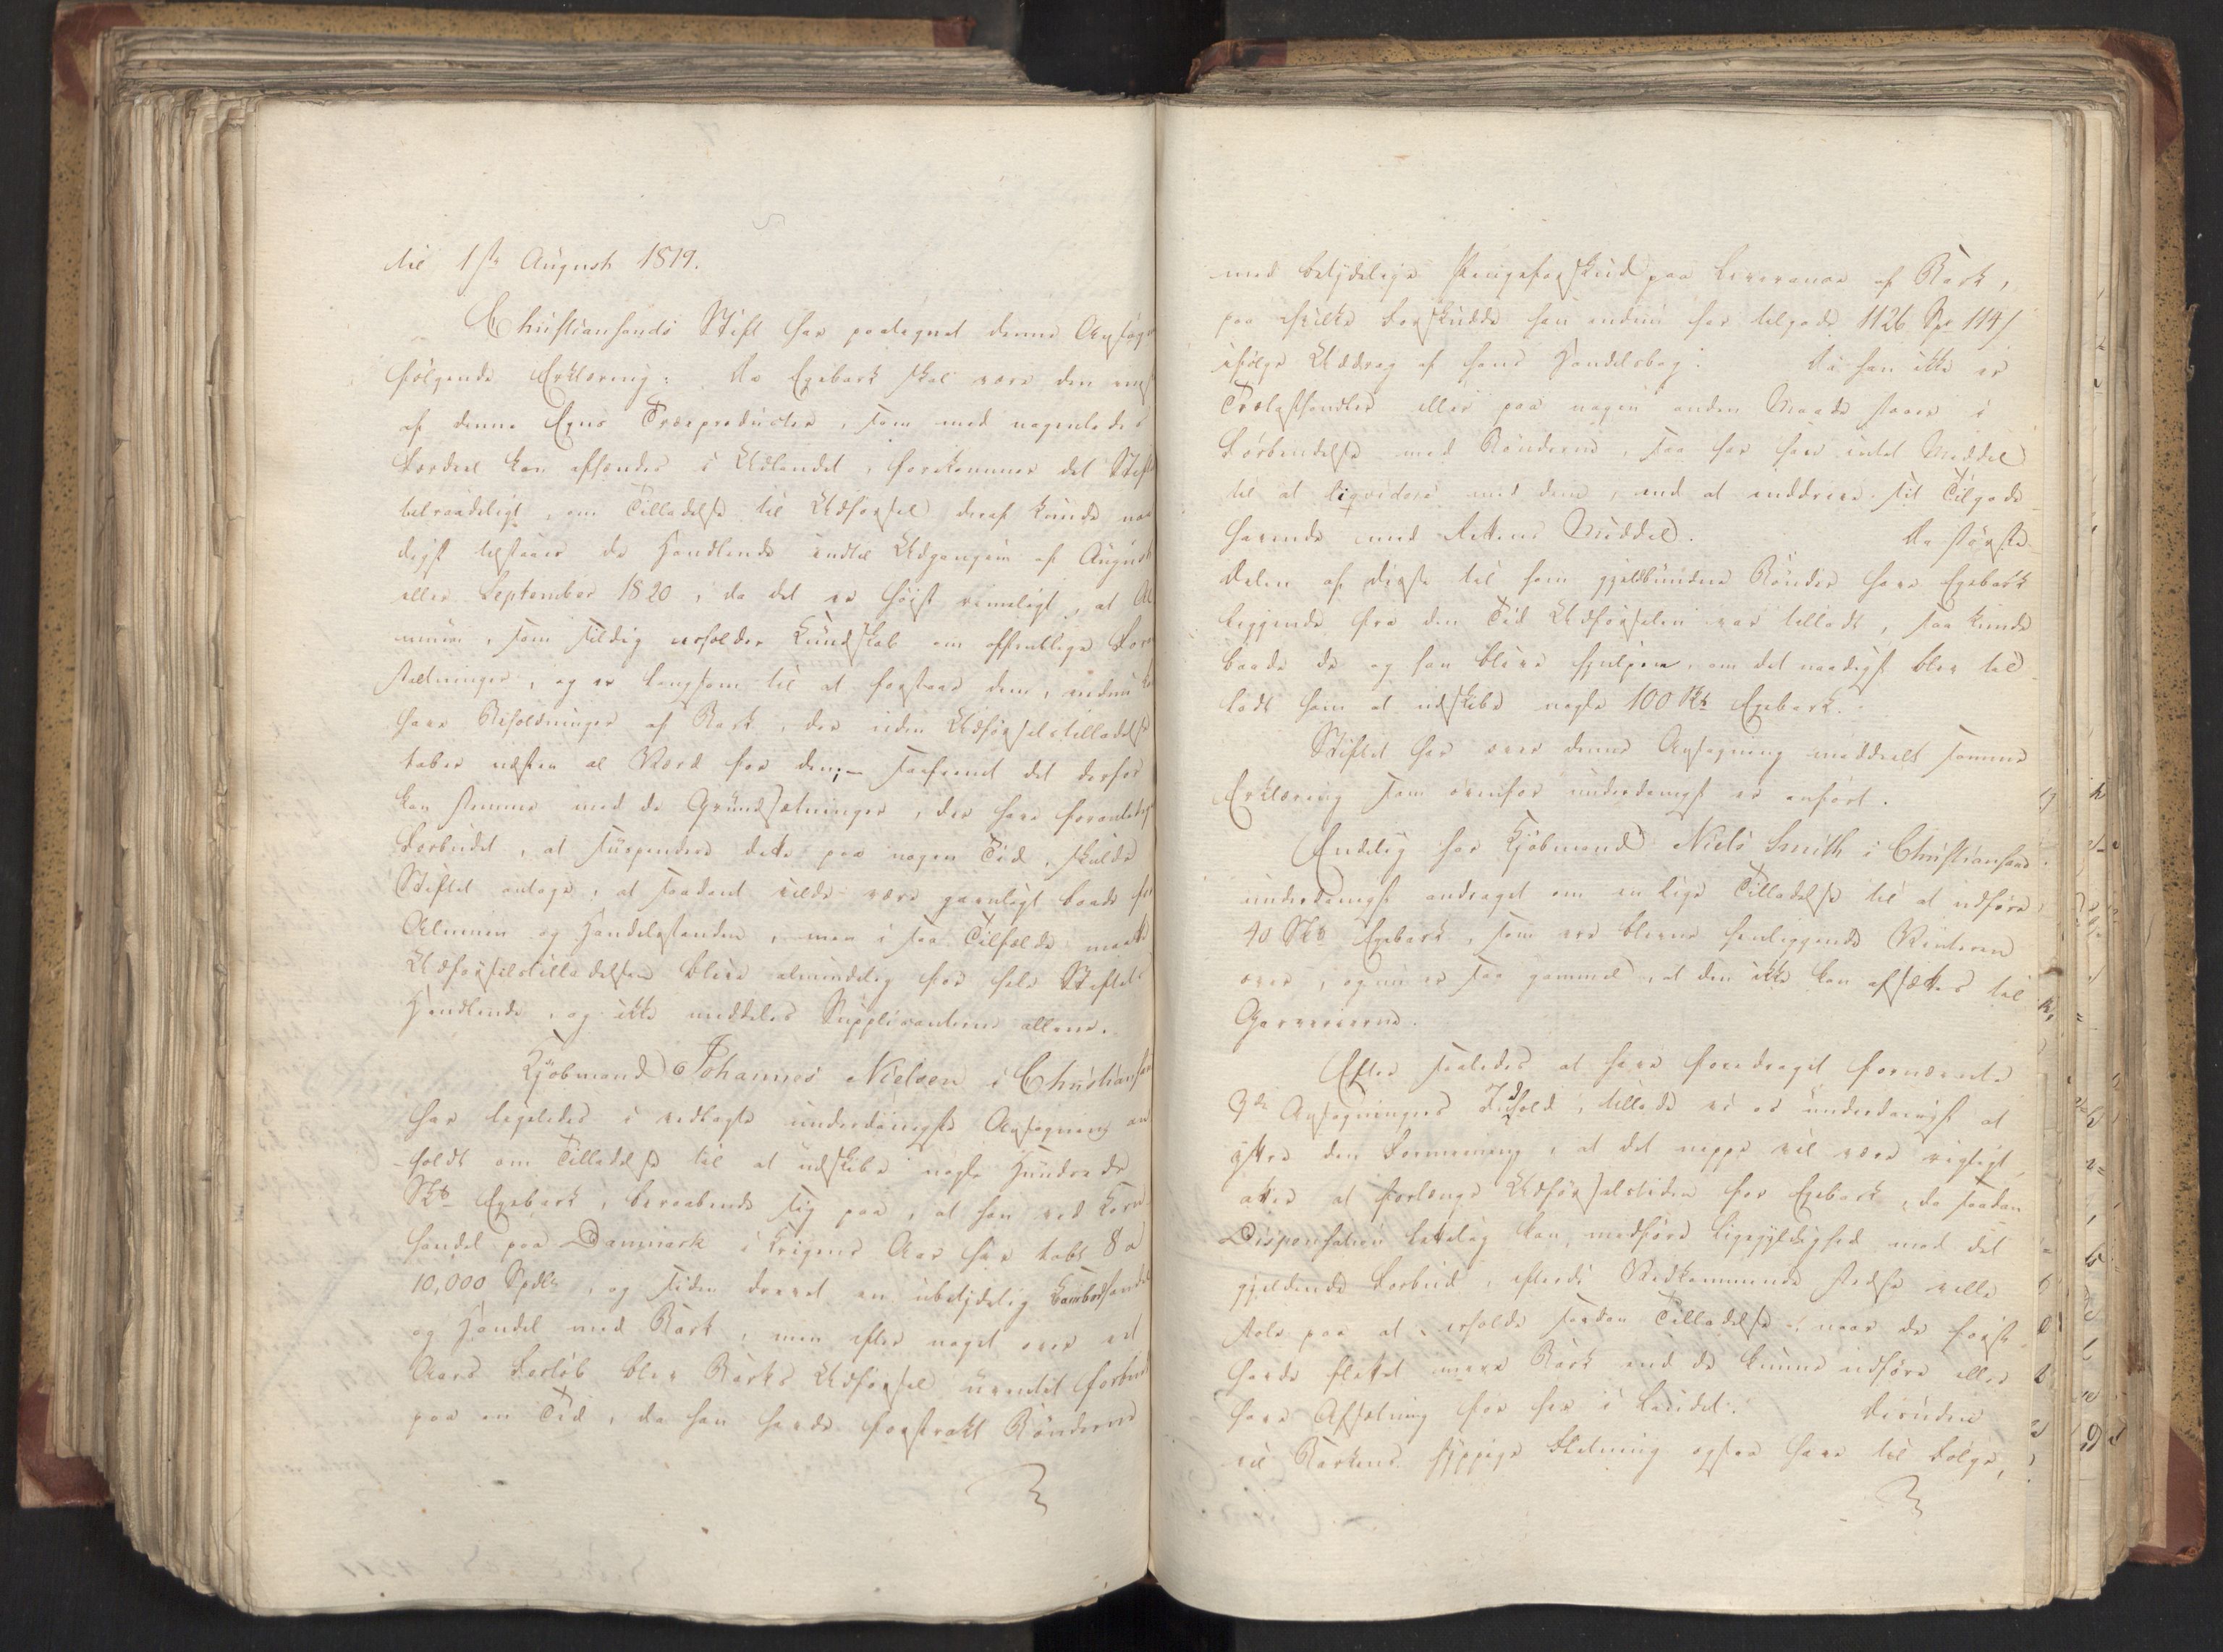 til 1ste August 1819.
Christiansands Stift har paategnet denne Ansøgn
følgende Erklæring: „Da Egebark skal være den enest
af denne Egns Træeproducter, som med nogenledes
Fordeel kan afsendes i Udlandet, forekommer det Stift
tilraadeligt, om Tilladelse til Udførsel deraf kunde naa
digst tilstaaes de Handlende indtil Udgangen af August
eller September 1820, da det er høist rimeligt, at Al
muen, som sildig erholder Kundskab om offentlige For
sætninger, og er langsom til at forstaae dem, endnu
have Beholdninger af Bark, der uden Udførselstilladelse
taber næsten al Værd for dem; – saafremt det derfor
kan stemme med de Grundsætninger, der have foranlediget
Forbudet, at suspendere dette paa nogen Tid, skulde
Stiftet antage, at saadant vilde være gavnligt baade for
Almuen og Handelsstanden, men i saa Tilfælde maatte
Udførselstilladelsen blive almindelig for hele Stiftets
Handlende, og ikke meddeles Supplicanterne allene.
Kjøbmand Johannes Nielsen i Christiansan
har ligeledes i vedlagte underdanigste Ansøgning an
holdt om Tilladelse til at udskibe nogle Hundrede
Sk℔ Egebark, beraabende sig paa, at han ved Korn
handel paa Danmark i Krigens Aar har tabt 8 a
10,000 Spdlr, og siden drevet en ubetydelig Krambodhandel
og Handel med Bark, men efter noget over et
Aars Forløb blev Barks Udførsel uventet forbudt
paa en Tid, da han havde forstrakt Bønderne
med betydelige Pengeforskud paa Leverance af Bark,
paa hvilke Forskudde han endnu har tilgode 1126 Spd 114 s
ifølge Uddrag af hans Handelsbog. Da han ikke er
Trælasthandler eller paa nogen anden Maade staaer i
Forbindelse med Bønderne, saa har han intet Middel
til at liqvidere med dem, end at inddrive sit Tilgode
havende med Rettens Middel. Da største
Delen af disse til ham gjeldbundne Bønder have Egebark
liggende fra den Tid Udførselen var tilladt, saa kunde
baade de og han blive hjulpen, om det naadigst blev til
ladt ham at udskibe nogle 100 Sk℔ Egebark.
Stiftet har over denne Ansøgning meddeelt samme
Erklæring som ovenfor underdanigst er anført.
Endelig har Kjøbmand Niels Smith i Christiansand
underdanigst andraget om en lige Tilladelse til at udføre
40 Sk℔ Egebark, som ere blevne henliggende Vinteren
over, og nu er saa gammel, at den ikke kan afsættes til
Garverierne.
Efter saaledes at have foredraget fornævnte
3de Ansøgningers Indhold, tillade vi os underdanigst at
yttre den Formening, at det neppe vil være rigtigt
atter at forlænge Udførselstiden for Egebark, da saadan
Dispensation letteligt kan medføre Ligegyldighed mod det
gjældende Forbud, efterdi Vedkommende stedse ville
stole paa at erholde saadan Tilladelse, naar de først
havde flettet mere Bark end de kunne udføre eller
have Afsætning for her i Landet. Desuden
vil Barkens hyppige Fletning ogsaa have til Følge,